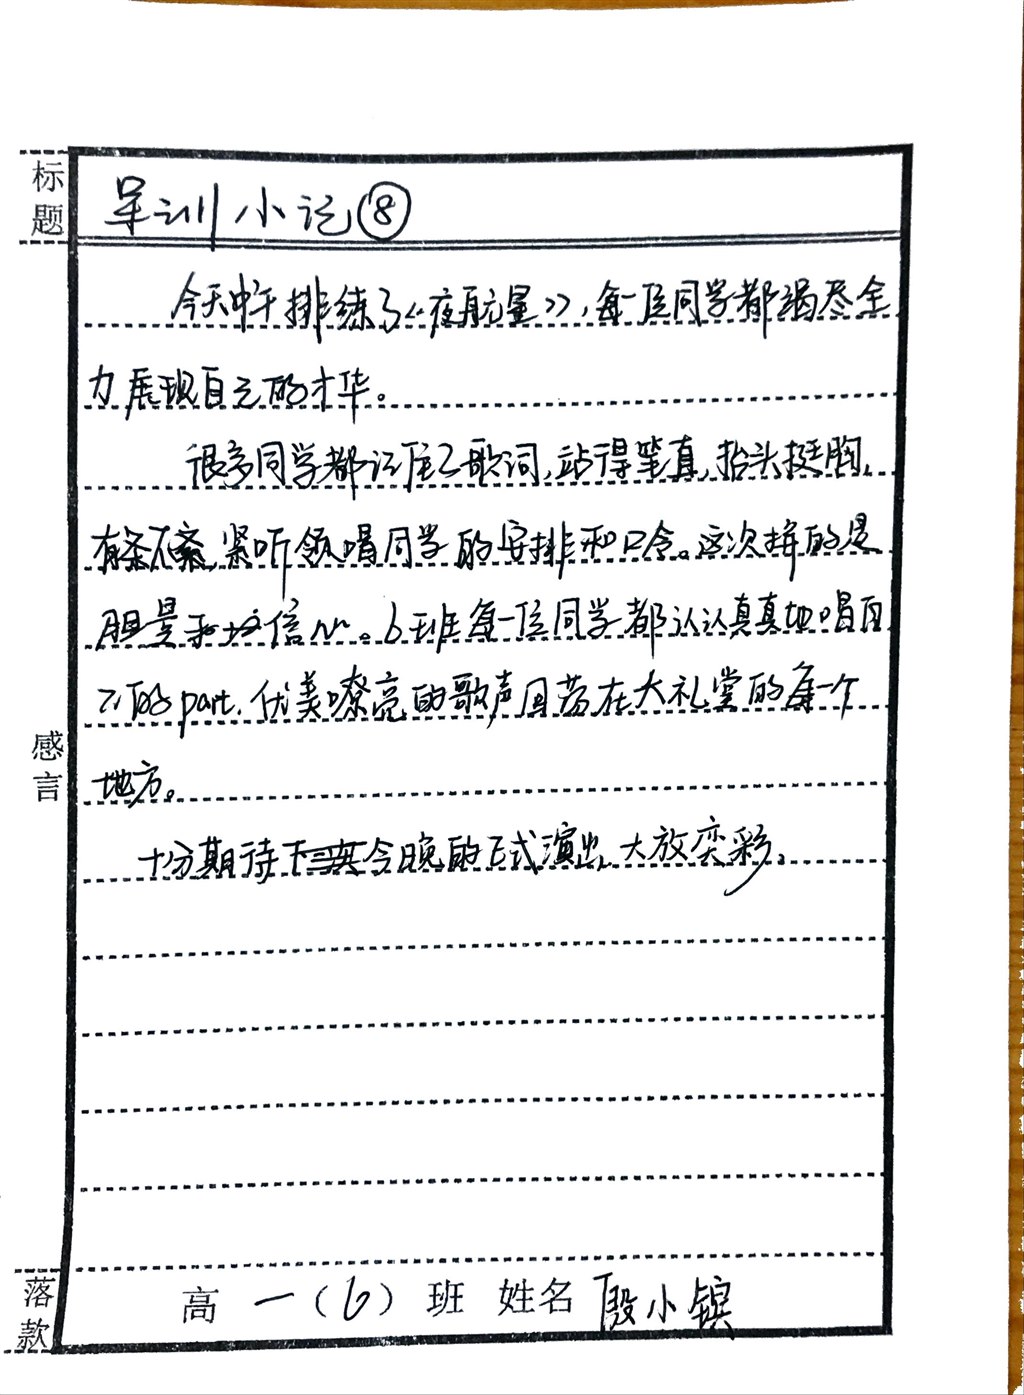 标题
军训小记⑧
今天中午排练了《夜有光量》，每一位同学都竭尽全
力展现自己的才华。
很多同学都记住了歌词，站得笔直，抬头挺胸，
有条不紊，紧听领唱同学的安排和口令。这次捧的是
胆量信心。6班每一位同学都认认真真地唱自
己的part，优美嘹亮的歌声回荡在大礼堂的每一个
地方。
感言
十分期待今晚的正式演出，大放奕彩。
落款
高一（6）班 姓名 殷小镔